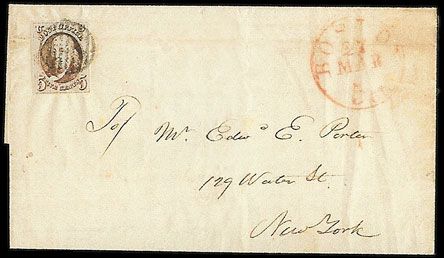 POST OFFICE
5 5
FIVE CENTS
BOSTON
MAR
To/ Mr. Edwd E. Porter
129 Water St.
New York